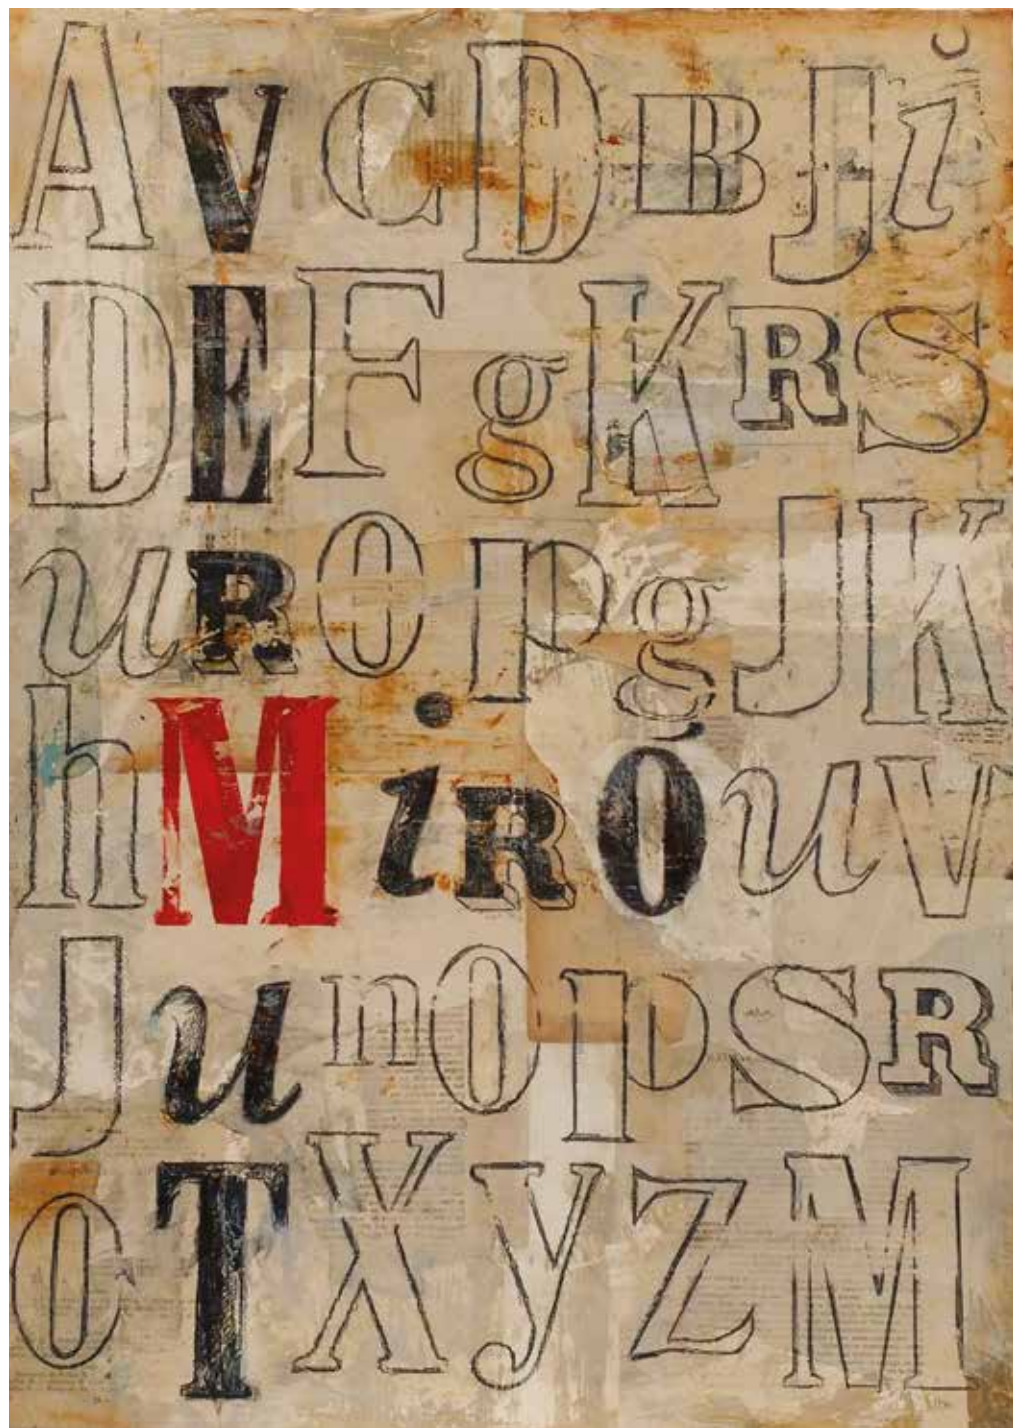 AVCDBJi
DEFgKRS
uROpgJK
hMiROuV
JunOpSR
OTXyZM